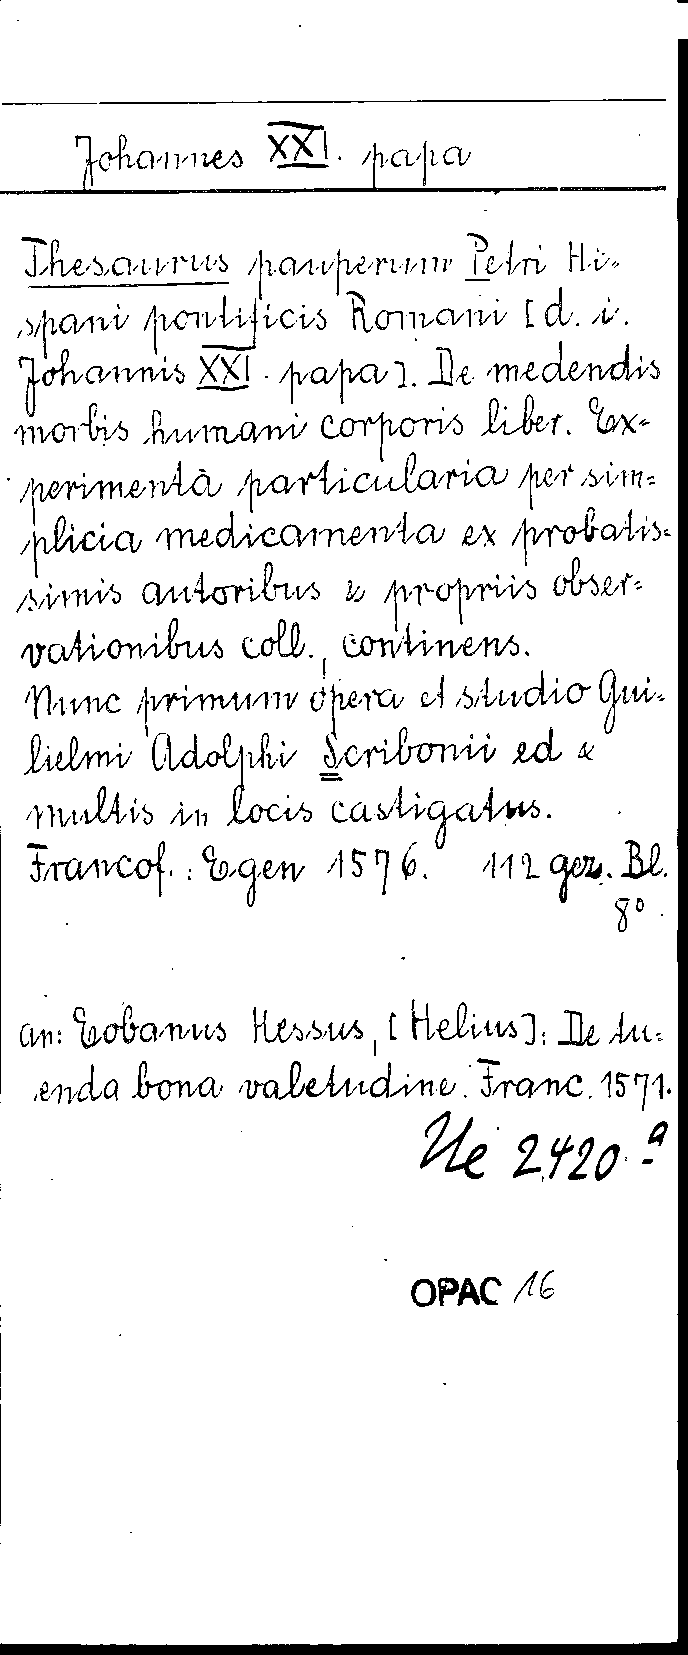 Johannes XXI. papa
Thesaurus pauperum Petri Hi-
spani pontificis Romani [d. i.
Johannis XXI. papa]. De medendis
morbis humani corporis liber. Ex-
perimenta particularia per sim-
plicia medicamenta ex probatis-
simis autoribus & propriis obser-
vationibus coll., continens.
Nunc primum opera et studio Gui-
lielmi Adolphi Scribonii ed &
multis in locis castigatus.
Francof.: Egen 1576. 112 gez. Bl.
8°.
an: Eobanus Hessus, [Helius]: De tu-
enda bona valetudine. Franc. 1571.
Ue 2420 a
OPAC 16